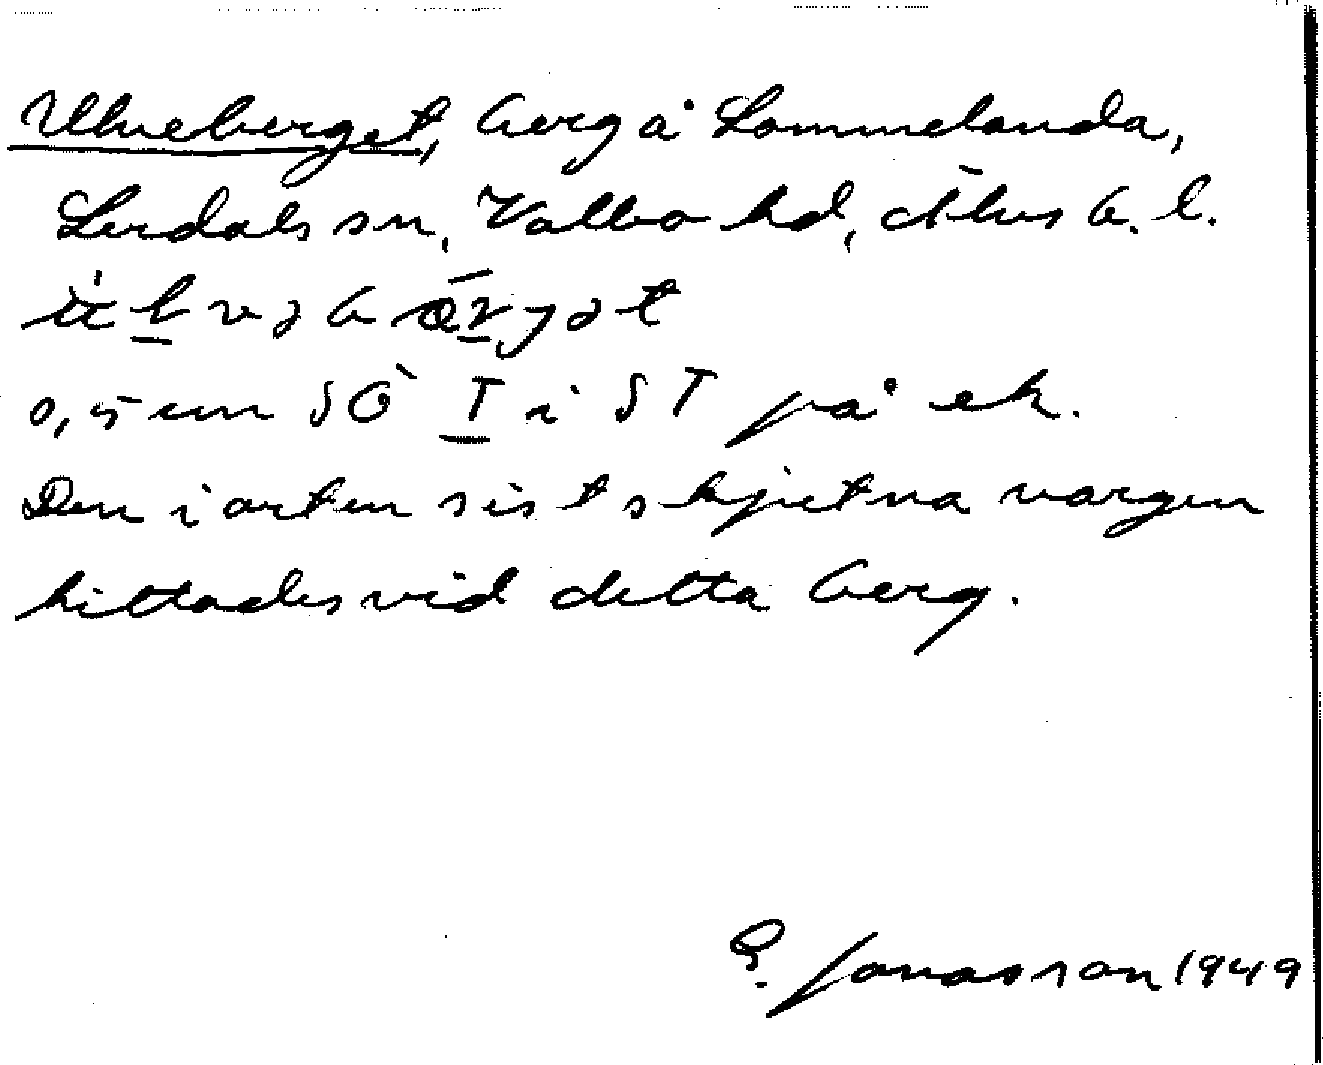 Ulveberget, berg å Lommelanda,
Lerdals sn, Valbo hd, Älvs b. l.
0,5 cm SÖ T i ST på ek.
Den i orten sist skjutna vargen
hittades vid detta berg.
G. Jonasson 1949